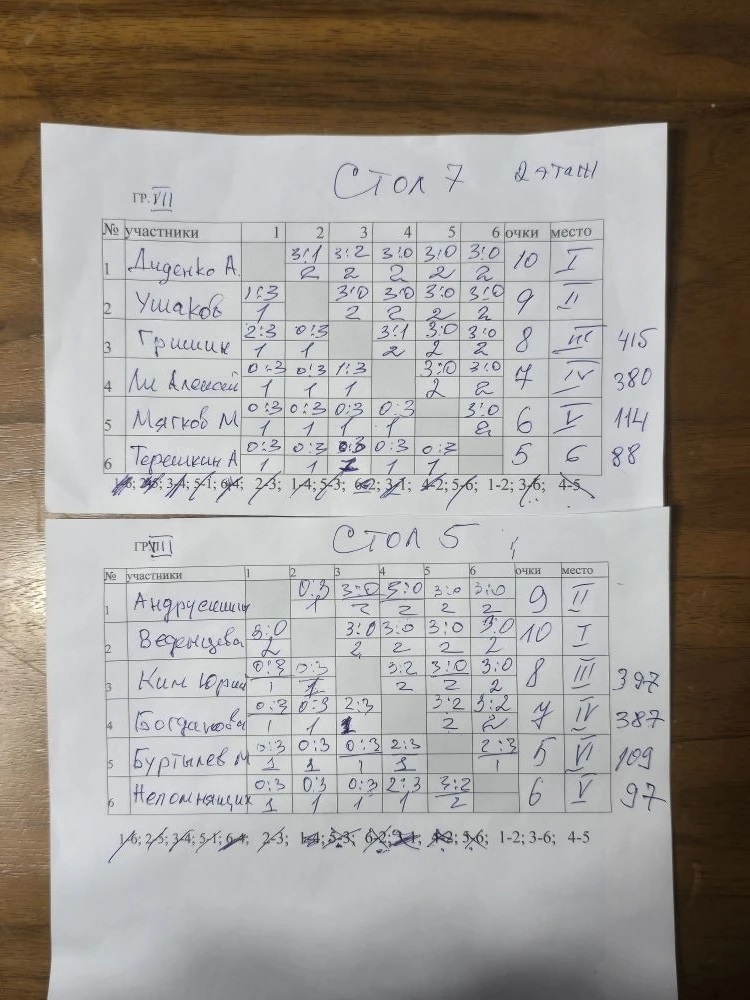 СТОЛ 7 2 ЭТАП
ГР. VII
№ участники 1 2 3 4 5 6 очки место
1 Диденко А. 3:1 3:2 3:0 3:0 3:0 10 I
2 2 2 2 2
2 Ушаков 1:3 3:0 3:0 3:0 3:0 9 II
1 2 2 2 2
3 Гришин 2:3 0:3 3:1 3:0 3:0 8 III 415
1 1 2 2 2
4 Ли Алексей 0:3 0:3 1:3 3:0 3:0 7 IV 380
1 1 1 2 2
5 Мягков М 0:3 0:3 0:3 0:3 3:0 6 V 114
1 1 1 1 2
6 Терешкин А 0:3 0:3 0:3 0:3 0:3 5 6 88
1 1 1 1 1
1-6; 2-5; 3-4; 5-1; 6-4; 2-3; 1-4; 5-3; 6-2; 3-1; 4-2; 5-6; 1-2; 3-6; 4-5
СТОЛ 5
ГР VIII
№ участники 1 2 3 4 5 6 очки место
1 0:3 3:0 3:0 3:0 3:0 9 II
1 2 2 2 2
2 Веденцева 3:0 3:0 3:0 3:0 3:0 10 I
2 2 2 2 2
3 Ким Юрий 0:3 0:3 3:2 3:0 3:0 8 III 397
1 1 2 2 2
4 Богданова 0:3 0:3 2:3 3:2 3:2 7 IV 387
1 1 1 2 2
5 Буртылев М 0:3 0:3 0:3 2:3 2:3 5 VI 109
1 1 1 1 1
6 Непомнящих 0:3 0:3 0:3 2:3 3:2 6 V 97
1 1 1 1 2
1-6; 2-5; 3-4; 5-1; 6-4; 2-3; 1-4; 5-3; 6-2; 3-1; 4-2; 5-6; 1-2; 3-6; 4-5